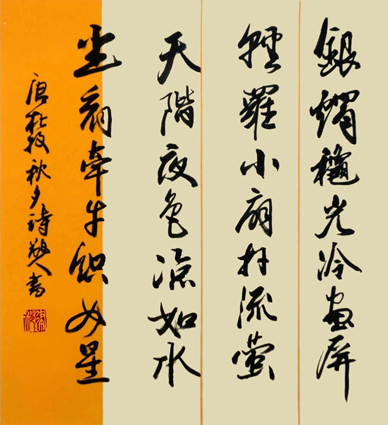 銀燭穐光冷畫屏
輕羅小扇打流螢
天階夜色涼如水
坐看牽牛織女星
唐杜牧秋夕詩 書